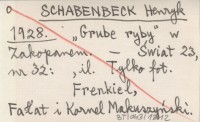 SCHABENBECK Henryk
1928. „Grube ryby" w
Zakopanem. – Świat 23,
nr 32: „il. Tylko fot.
Frenkiel,
Fałat i Kornel Makuszyński.